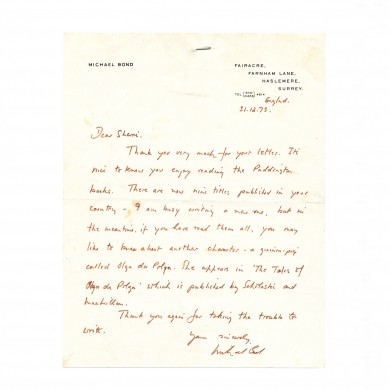 MICHAEL BOND
FAIRACRE,
FARNHAM LANE,
HASLEMERE,
SURREY.
England.
31.12.73.
Dear Sherri,
Thank you very much for your letter. It's
nice to know you enjoy reading the Paddington
books. There are now nine titles published in your
country - I am busy writing a new one, but in
the meantime, if you have read them all, you may
like to know about another character - a guinea-pig
called Olga da Polga. She appears in 'The Tales of
Olga da Polga' which is published by Scholastic and
Macmillan.
Thank you again for taking the trouble to
write.
Yours sincerely,
Michael Bond